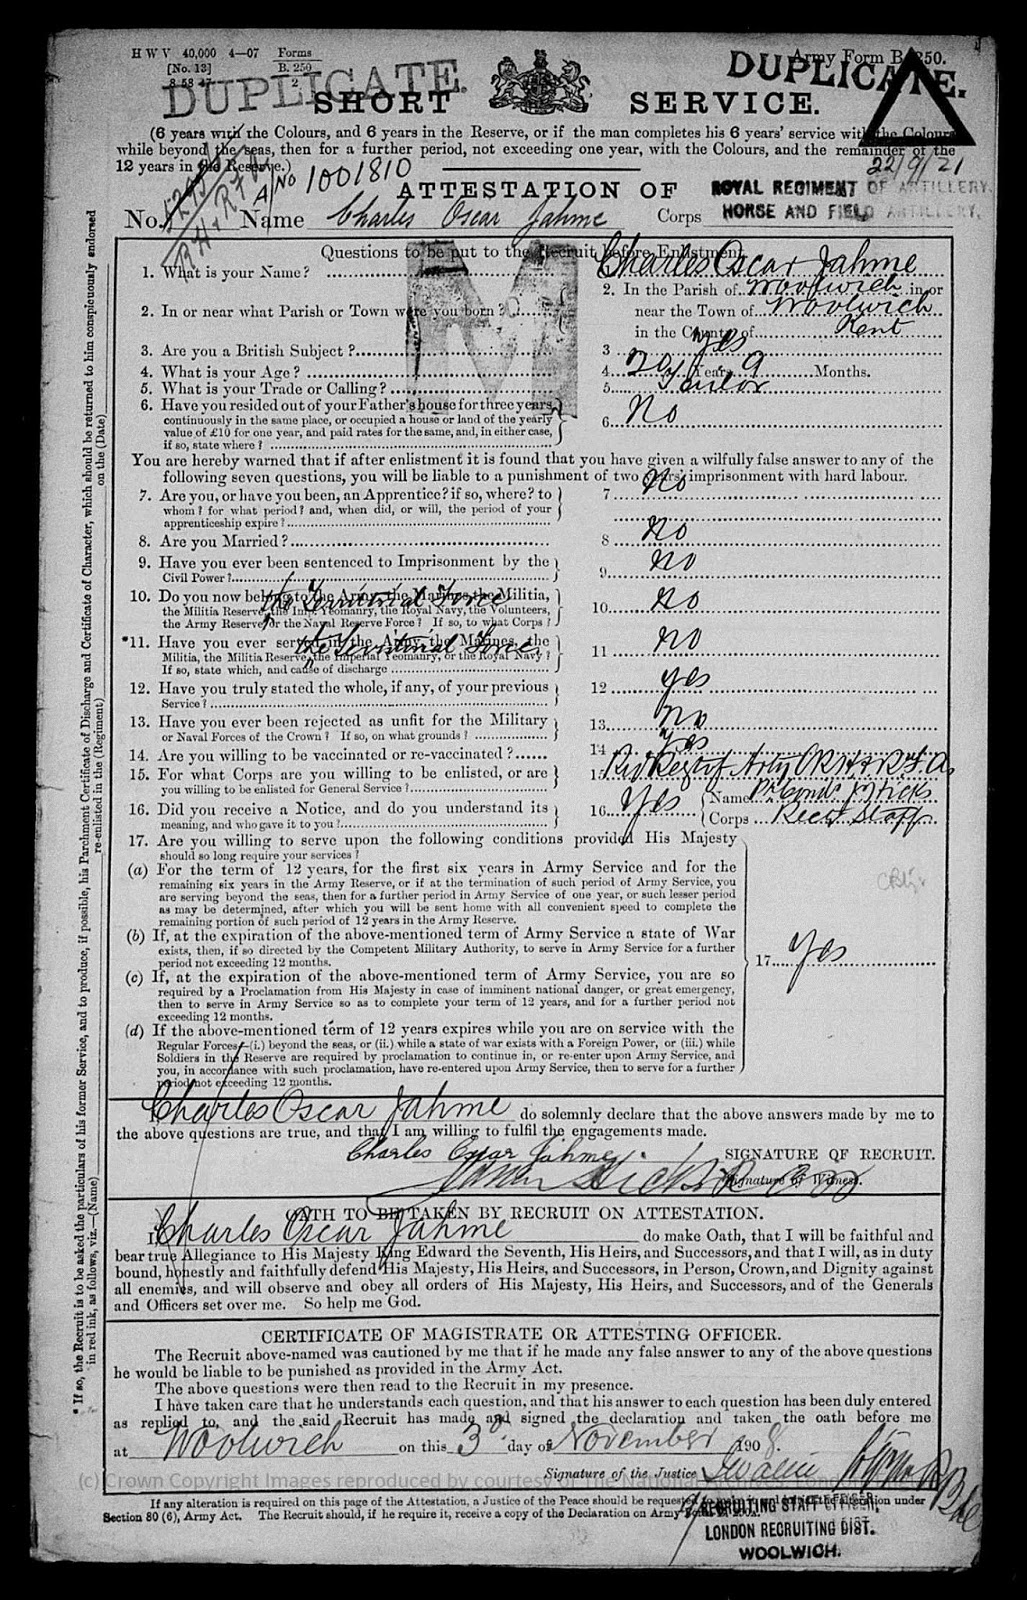 H W V 40,000 4—07 Forms
[No. 13] B. 250
8 58 47 2
Army Form B. 250.
DUPLICATE.
DUPLICATE.
SHORT SERVICE.
(6 years with the Colours, and 6 years in the Reserve, or if the man completes his 6 years' service with the Colours
while beyond the seas, then for a further period, not exceeding one year, with the Colours, and the remainder of the
12 years in the Reserve.)
22/9/21
A/No 1001810
ATTESTATION OF
ROYAL REGIMENT OF ARTILLERY.
HORSE AND FIELD ARTILLERY.
No. Name Charles Oscar Jahme Corps
RH & RFA
Questions to be put to the Recruit before Enlistment.
1. What is your Name? Charles Oscar Jahme
2. In or near what Parish or Town were you born?
2. In the Parish of Woolwich in or
near the Town of Woolwich
in the County of Kent
3. Are you a British Subject? 3 Yes
4. What is your Age? 4 20 Years 9 Months.
5. What is your Trade or Calling? 5 Tailor
6. Have you resided out of your Father's house for three years
continuously in the same place, or occupied a house or land of the yearly
value of £10 for one year, and paid rates for the same, and, in either case,
if so, state where? 6 No
You are hereby warned that if after enlistment it is found that you have given a wilfully false answer to any of the
following seven questions, you will be liable to a punishment of two years' imprisonment with hard labour.
7. Are you, or have you been, an Apprentice? if so, where? to
whom? for what period? and, when did, or will, the period of your
apprenticeship expire? 7 No
8. Are you Married? 8 No
9. Have you ever been sentenced to Imprisonment by the
Civil Power? 9 No
10. Do you now belong to the Army, the Marines, the Militia,
the Territorial Force
the Militia Reserve, the Imp. Yeomanry, the Royal Navy, the Volunteers,
the Army Reserve, or the Naval Reserve Force? If so, to what Corps? 10 No
*11. Have you ever served in the Army, the Marines, the
the Territorial Force
Militia, the Militia Reserve, the Imperial Yeomanry, or the Royal Navy?
If so, state which, and cause of discharge 11 No
12. Have you truly stated the whole, if any, of your previous
Service? 12 Yes
13. Have you ever been rejected as unfit for the Military
or Naval Forces of the Crown? If so, on what grounds? 13 No
14. Are you willing to be vaccinated or re-vaccinated? 14 Yes
15. For what Corps are you willing to be enlisted, or are
you willing to be enlisted for General Service? 15
16. Did you receive a Notice, and do you understand its
meaning, and who gave it to you? 16 Yes Name Hicks
Corps Recg Staff
17. Are you willing to serve upon the following conditions provided His Majesty
should so long require your services?
(a) For the term of 12 years, for the first six years in Army Service and for the
remaining six years in the Army Reserve, or if at the termination of such period of Army Service, you
are serving beyond the seas, then for a further period in Army Service of one year, or such lesser period
as may be determined, after which you will be sent home with all convenient speed to complete the
remaining portion of such period of 12 years in the Army Reserve.
(b) If, at the expiration of the above-mentioned term of Army Service a state of War
exists, then, if so directed by the Competent Military Authority, to serve in Army Service for a further
period not exceeding 12 months.
17 Yes
(c) If, at the expiration of the above-mentioned term of Army Service, you are so
required by a Proclamation from His Majesty in case of imminent national danger, or great emergency,
then to serve in Army Service so as to complete your term of 12 years, and for a further period not
exceeding 12 months.
(d) If the above-mentioned term of 12 years expires while you are on service with the
Regular Forces—(i.) beyond the seas, or (ii.) while a state of war exists with a Foreign Power, or (iii.) while
Soldiers in the Reserve are required by proclamation to continue in, or re-enter upon Army Service, and
you, in accordance with such proclamation, have re-entered upon Army Service, then to serve for a further
period not exceeding 12 months.
I, Charles Oscar Jahme do solemnly declare that the above answers made by me to
the above questions are true, and that I am willing to fulfil the engagements made.
Charles Oscar Jahme SIGNATURE OF RECRUIT.
Signature of Witness.
OATH TO BE TAKEN BY RECRUIT ON ATTESTATION.
I, Charles Oscar Jahme do make Oath, that I will be faithful and
bear true Allegiance to His Majesty King Edward the Seventh, His Heirs, and Successors, and that I will, as in duty
bound, honestly and faithfully defend His Majesty, His Heirs, and Successors, in Person, Crown, and Dignity against
all enemies, and will observe and obey all orders of His Majesty, His Heirs, and Successors, and of the Generals
and Officers set over me. So help me God.
CERTIFICATE OF MAGISTRATE OR ATTESTING OFFICER.
The Recruit above-named was cautioned by me that if he made any false answer to any of the above questions
he would be liable to be punished as provided in the Army Act.
The above questions were then read to the Recruit in my presence.
I have taken care that he understands each question, and that his answer to each question has been duly entered
as replied to, and the said Recruit has made and signed the declaration and taken the oath before me
at Woolwich on this 3d day of November 1908.
Signature of the Justice
(c) Crown Copyright Images reproduced by courtesy of the National
If any alteration is required on this page of the Attestation, a Justice of the Peace should be requested to alteration under
Section 80 (6), Army Act. The Recruit should, if he require it, receive a copy of the Declaration on Army
RECRUITING STAFF OFFICER,
LONDON RECRUITING DIST.
WOOLWICH.
* If so, the Recruit is to be asked the particulars of his former Service, and to produce, if possible, his Parchment Certificate of Discharge and Certificate of Character, which should be returned to him conspicuously endorsed
in red ink, as follows, viz.—(Name) re-enlisted in the (Regiment) on the (Date)